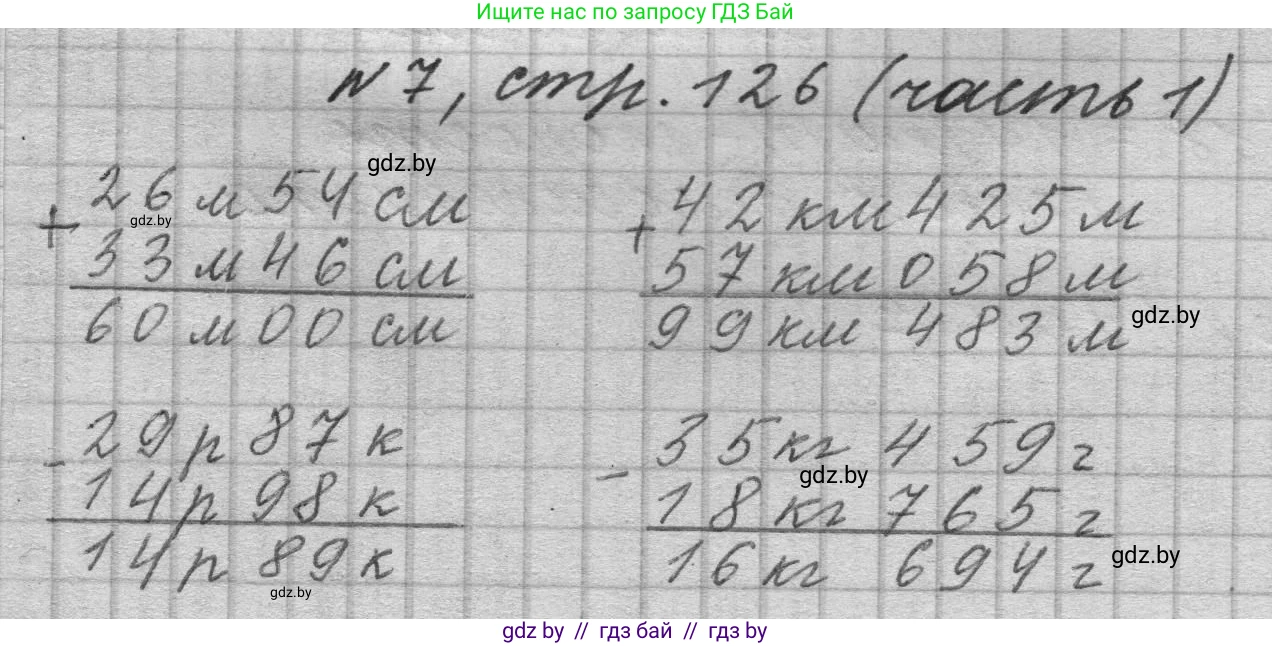 Ищите нас по запросу ГДЗ Бай
№ 7, стр. 126 (часть 1)
gdz.by
+ 26 м 54 см
gdz.by
33 м 46 см
60 м 00 см
+ 42 км 425 м
57 км 058 м
99 км 483 м
gdz.by
- 29 р 87 к
14 р 98 к
14 р 89 к
gdz.by
- 35 кг 459 г
gdz.by
18 кг 765 г
16 кг 694 г
gdz.by
gdz by // гдз бай // гдз by